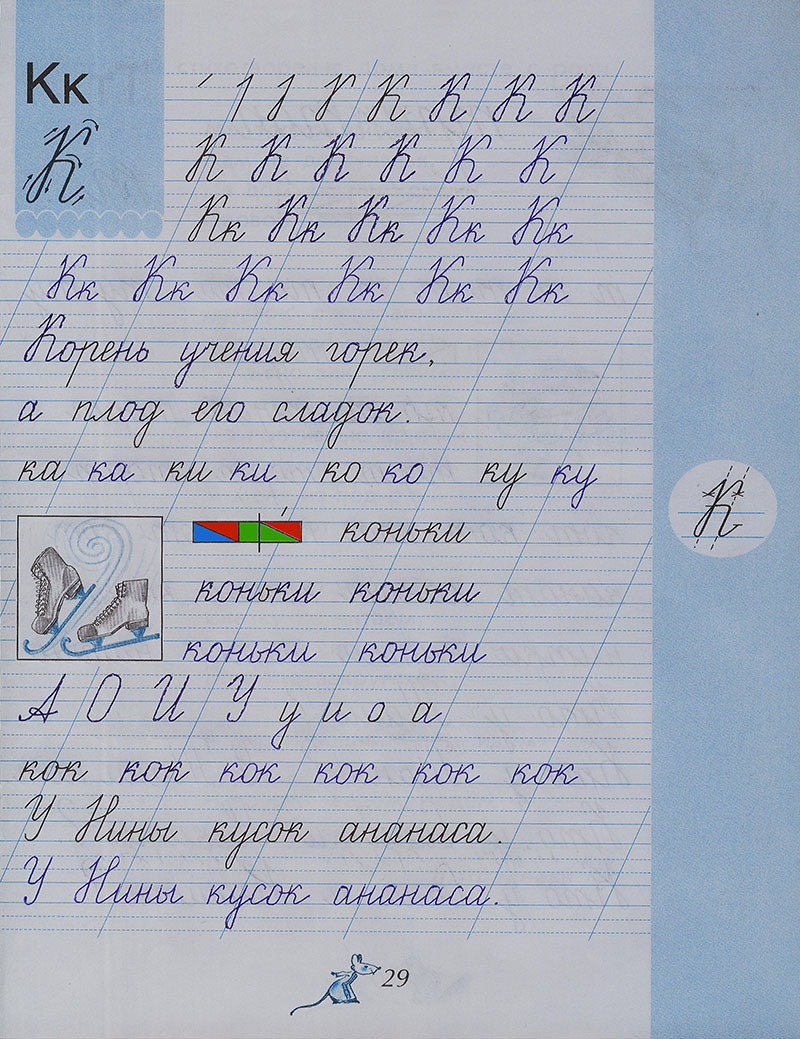 Кк
К
К К К К
К К К К К К
Кк Кк Кк Кк Кк
Кк Кк Кк Кк Кк Кк
Корень учения горек,
а плод его сладок.
ка ка ки ки ко ко ку ку
коньки
коньки коньки
коньки коньки
А О И У у и о а
кок кок кок кок кок кок
У Нины кусок ананаса.
У Нины кусок ананаса.
К
29